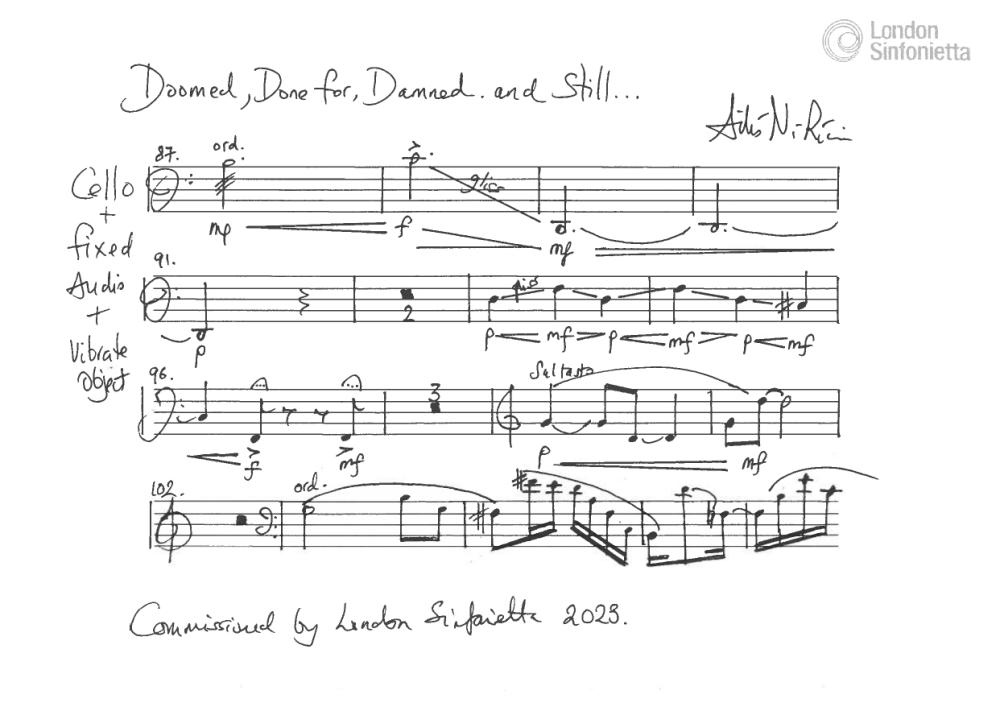 London
Sinfonietta
Doomed, Done for, Damned. and Still...
Cello
+
fixed
Audio
+
Vibrate
Object
87.
ord.
gliss
mp
f
mf
91.
2
p
p mf p mf p mf
96.
3
Sul tasto
f mf
p mf
102.
ord.
Commissioned by London Sinfonietta 2023.